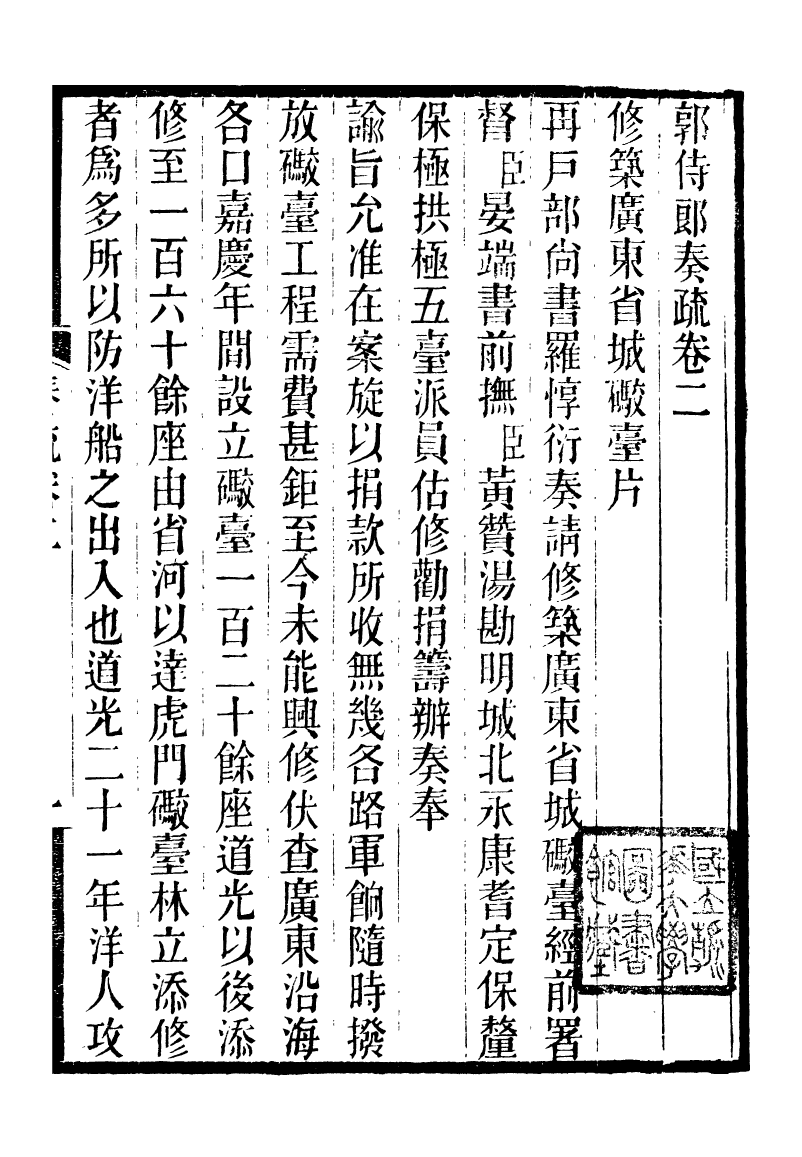 郭侍郎奏疏卷二
修築廣東省城礮臺片
再戶部尚書羅惇衍奏請修築廣東省城礮臺經前署
督臣晏端書前撫臣黃贊湯勘明城北永康耆定保釐
保極拱極五臺派員估修勸捐籌辦奏奉
諭旨允准在案旋以捐款所收無幾各路軍餉隨時撥
放礮臺工程需費甚鉅至今未能興修伏查廣東沿海
各口嘉慶年間設立礮臺一百二十餘座道光以後添
修至一百六十餘座由省河以達虎門礮臺林立添修
者爲多所以防洋船之出入也道光二十一年洋人攻